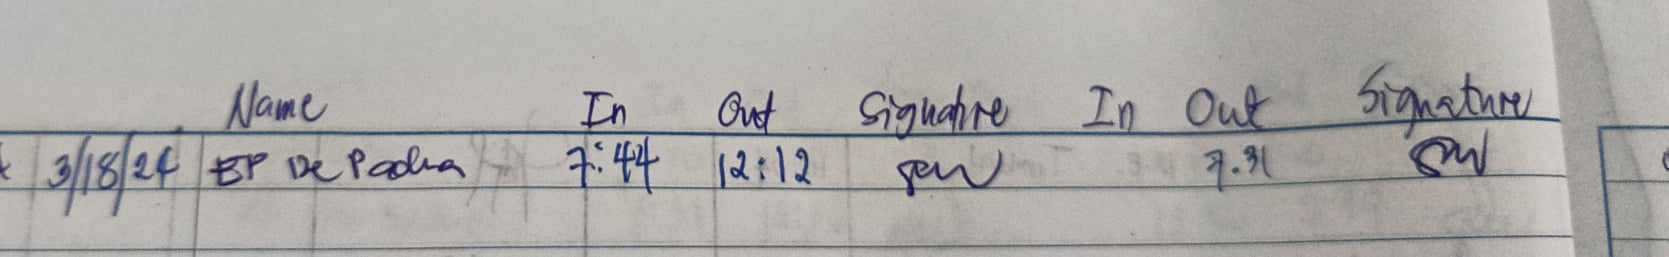 Name In Out Signature In Out Signature
3/18/24 EP De Padua 7:44 12:12 7.31